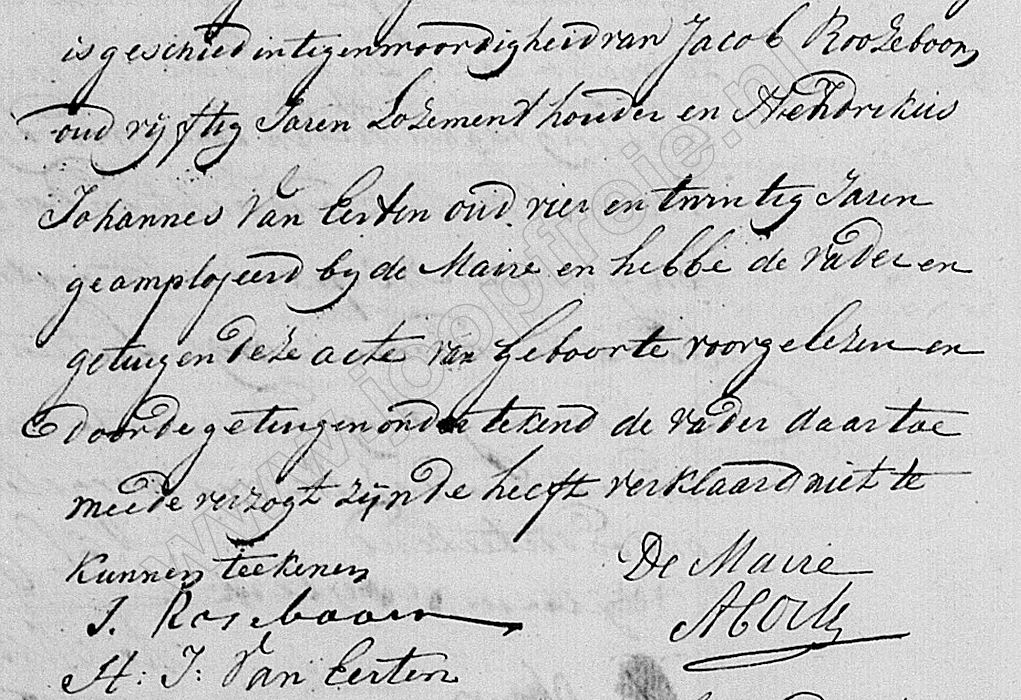 is geschied in tegenwoordigheid van Jacob Roozeboom
oud vijftig Jaren Lozement houder en Hendrikus
Johannes Van Eerten oud vier en twintig Jaren
geamplojeerd by de Maire en hebbe de vader en
getuigen deze acte van geboorte voorgelezen en
door de getuigen ondertekend de vader daartoe
meede verzogt zijnde heeft verklaard niet te
kunnen teekenen
De Maire
J. Roseboom
H: J: Van Eerten
www.joopfroie.nl